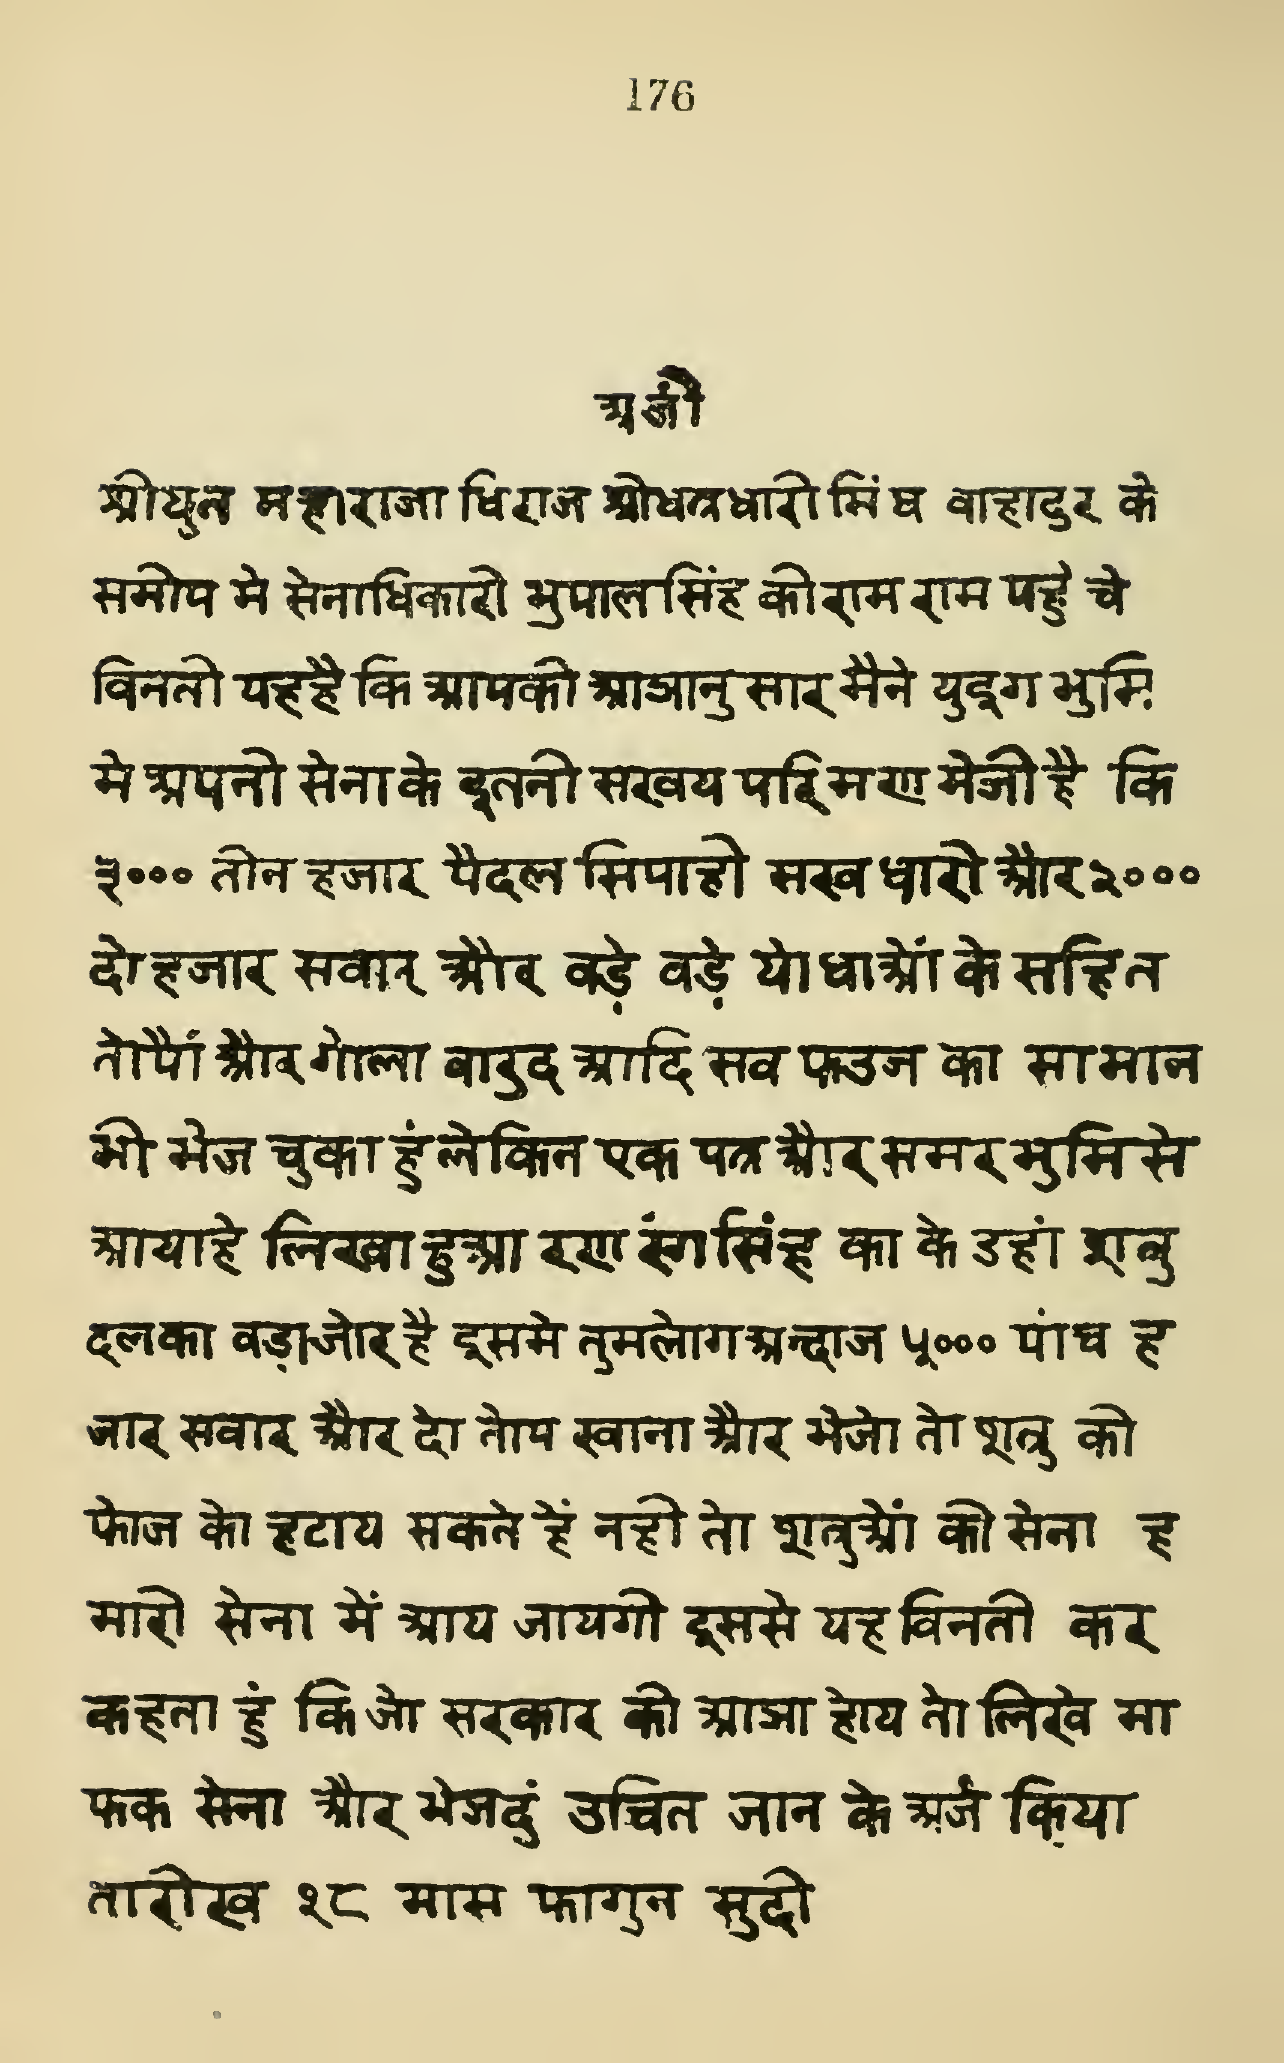 176
अर्जी
श्रीयुत महाराजा धिराज श्रीधत्रधारी सिंघ वाहादुर के
समीप मे सेनाधिकारी भुपालसिंह की राम राम पहुंचे
विनती यहहै कि आपकी आज्ञानु सार मैने युद्ध भुमि
मे अपनी सेना के इतनी सख्य परिमण भेजी है कि
३००० तीन हजार पैदल सिपाही सस्त्र धारी और २०००
दो हजार सवार और वड़े वड़े योधाओं के सहित
तोपैां और गोला वारुद आदि सव फउज का सामान
भी भेज चुका हुं लेकिन एक पत्र और समर भुमि से
आयाहे लिखा हुआ रण रंग सिंह का के उहां शत्रु
दलका वड़ाजोर है इसमे तुमलोग अन्दाज ५००० पांच ह
जार सवार और दो तोप खाना और भेजो तो शत्रु की
फोज को हटाय सकते हैं नही तो शत्रुओं की सेना ह
मारी सेना में आय जायगी इससे यह विनती कर
कहता हुं कि जो सरकार की आज्ञा होय तो लिखे मा
फक सेना और भेजदुं उचित जान के अर्ज किया
तारीख १८ मास फागुन सुदी